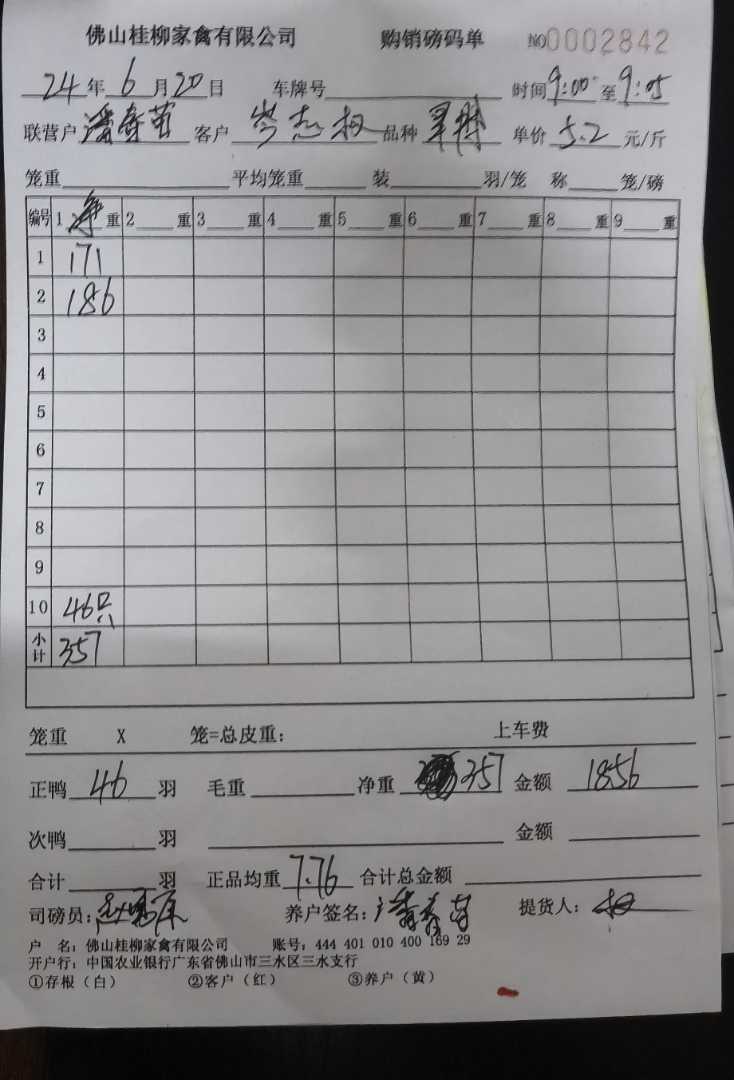 佛山桂柳家禽有限公司 购销磅码单 NO0002842
24年6月20日 车牌号 时间9:00至9:05
联营户 客户 岑志权 品种 单价5.2元/斤
笼重 平均笼重 装 羽/笼 称 笼/磅
编号 1净重 2重 3重 4重 5重 6重 7重 8重 9重
1 171
2 186
3
4
5
6
7
8
9
10 46只
小计 357
笼重 X 笼=总皮重: 上车费
正鸭46羽 毛重 净重 357 金额 1856
次鸭 羽 金额
合计 羽 正品均重7.76 合计总金额
司磅员: 养户签名: 提货人: 权
户 名: 佛山桂柳家禽有限公司 账号: 444 401 010 400 169 29
开户行: 中国农业银行广东省佛山市三水区三水支行
①存根(白) ②客户(红) ③养户(黄)